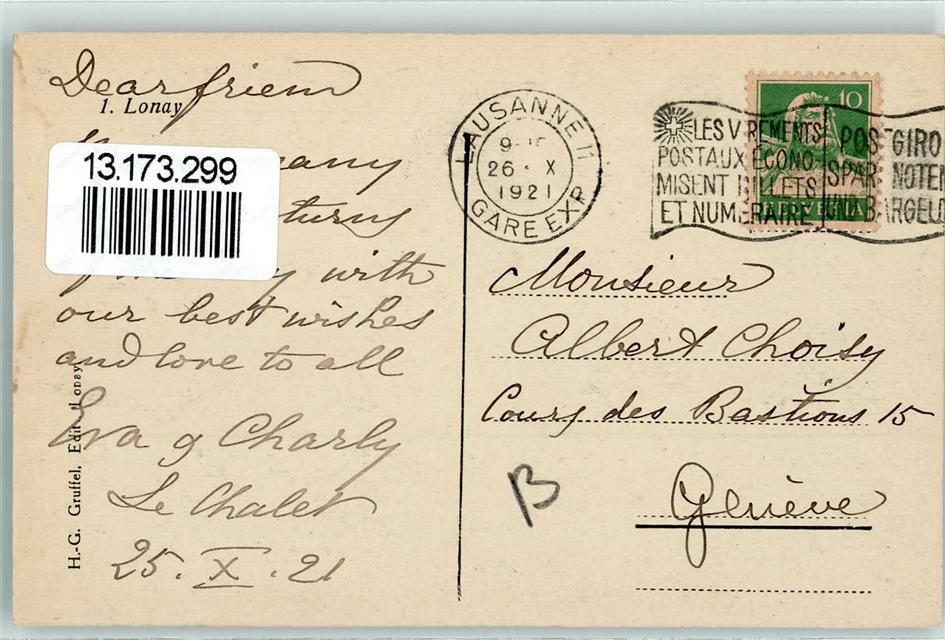 Dear friend
1. Lonay
13.173.299
many
returns
with
our best wishes
and love to all
Eva & Charly
Le Chalet
25. X. 21
H.-G. Gruffel, Edit. Lonay
LAUSANNE 11
26. X
1921
GARE EXP.
LES VIREMENTS
POSTAUX ÉCONO-
MISENT BILLETS
ET NUMÉRAIRE
POSTGIRO
SPART NOTEN
UND BARGELD
10
HELVETIA
Monsieur
Albert Choisy
Cours des Bastions 15
Genève
B